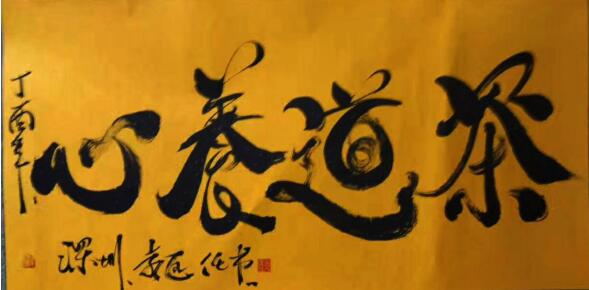 茶道養心
丁酉年
深圳